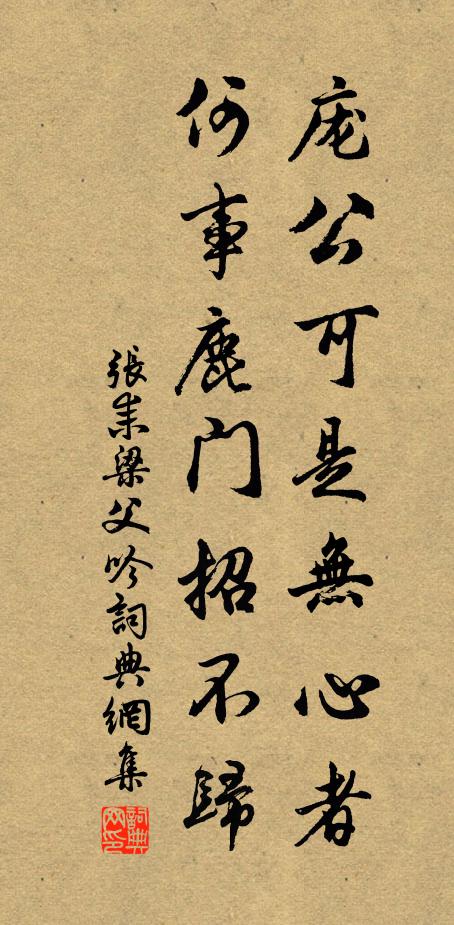 庞公可是無心者
何事鹿門招不歸
張耒梁父吟詞典網集
詞典网印